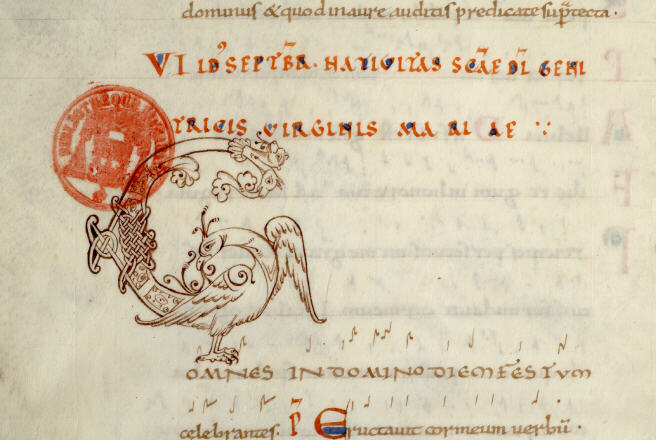 dominus & quod in aure auditis predicate sup̄ tecta.
VI ID' SEPTB̄R. NATIVITAS SC̄AE DĪ GENI
TRICIS VIRGINIS MARIAE
G
OMNES IN DOMINO DIEM FESTVM
celebrantes. P̄ Eructauit cor meum uerbū.